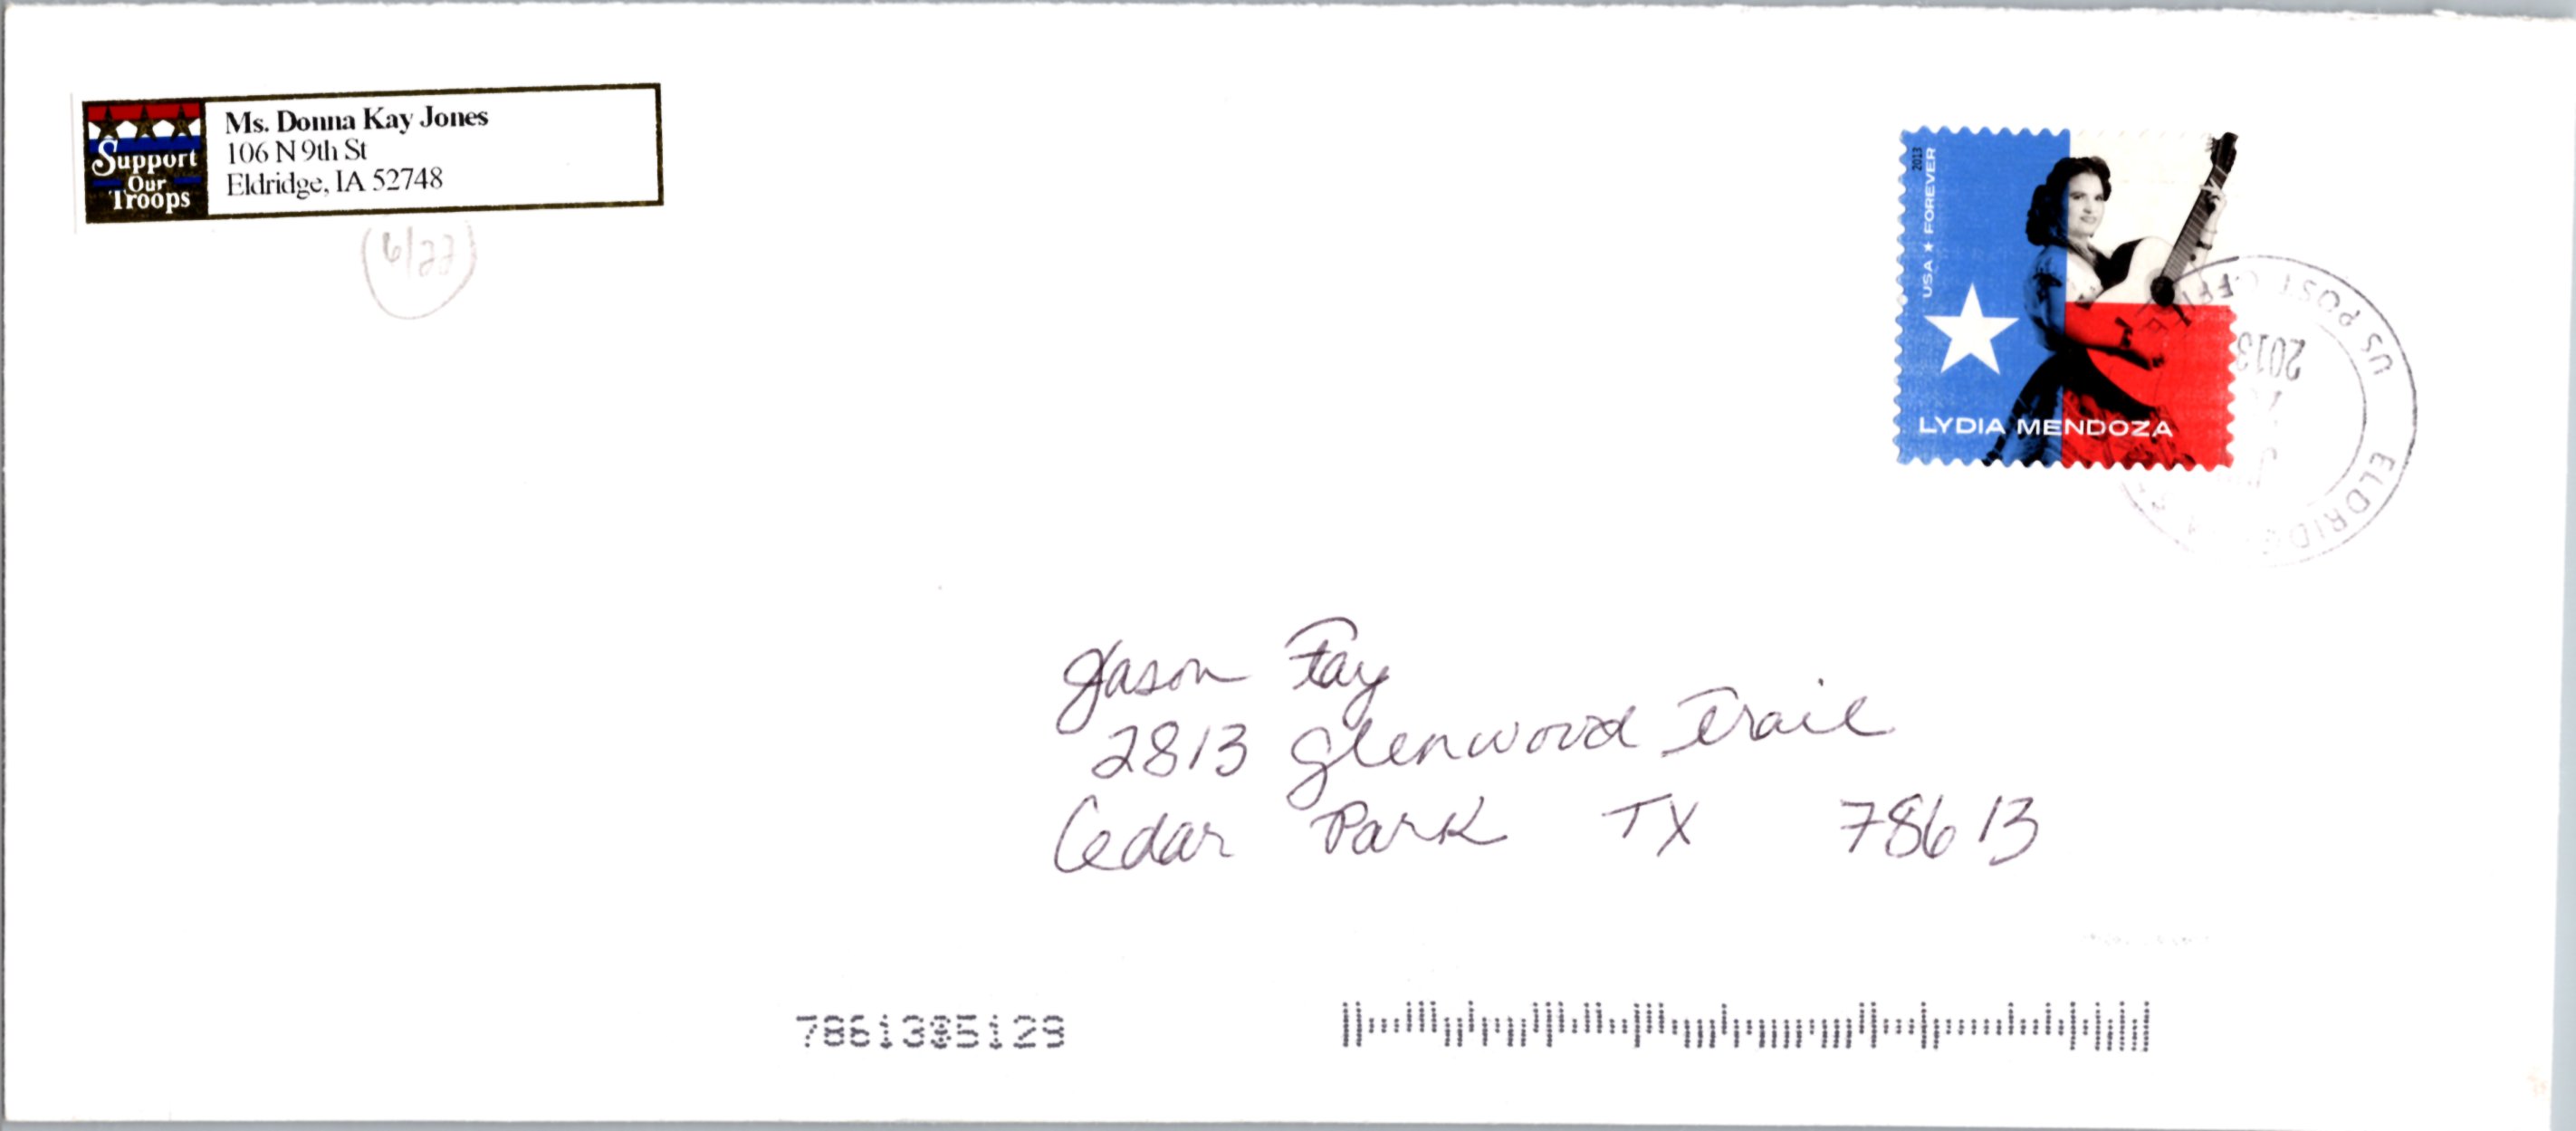 Support
Our
Troops
Ms. Donna Kay Jones
106 N 9th St
Eldridge, IA 52748
(6/22)
2013
USA ★ FOREVER
LYDIA MENDOZA
US POST OFFI
2013
ELDRIDG
Jason Fay
2813 Glenwood Trail
Cedar Park TX 78613
78613